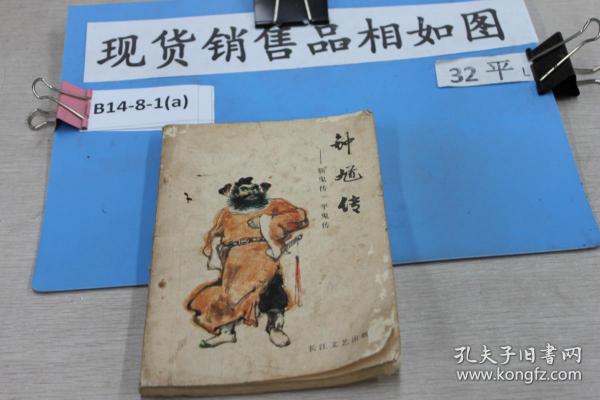 现货销售品相如图
32平 L
B14-8-1(a)
钟馗传
——斩鬼传 平鬼传
长江文艺出版
孔夫子旧书网
www.kongfz.com